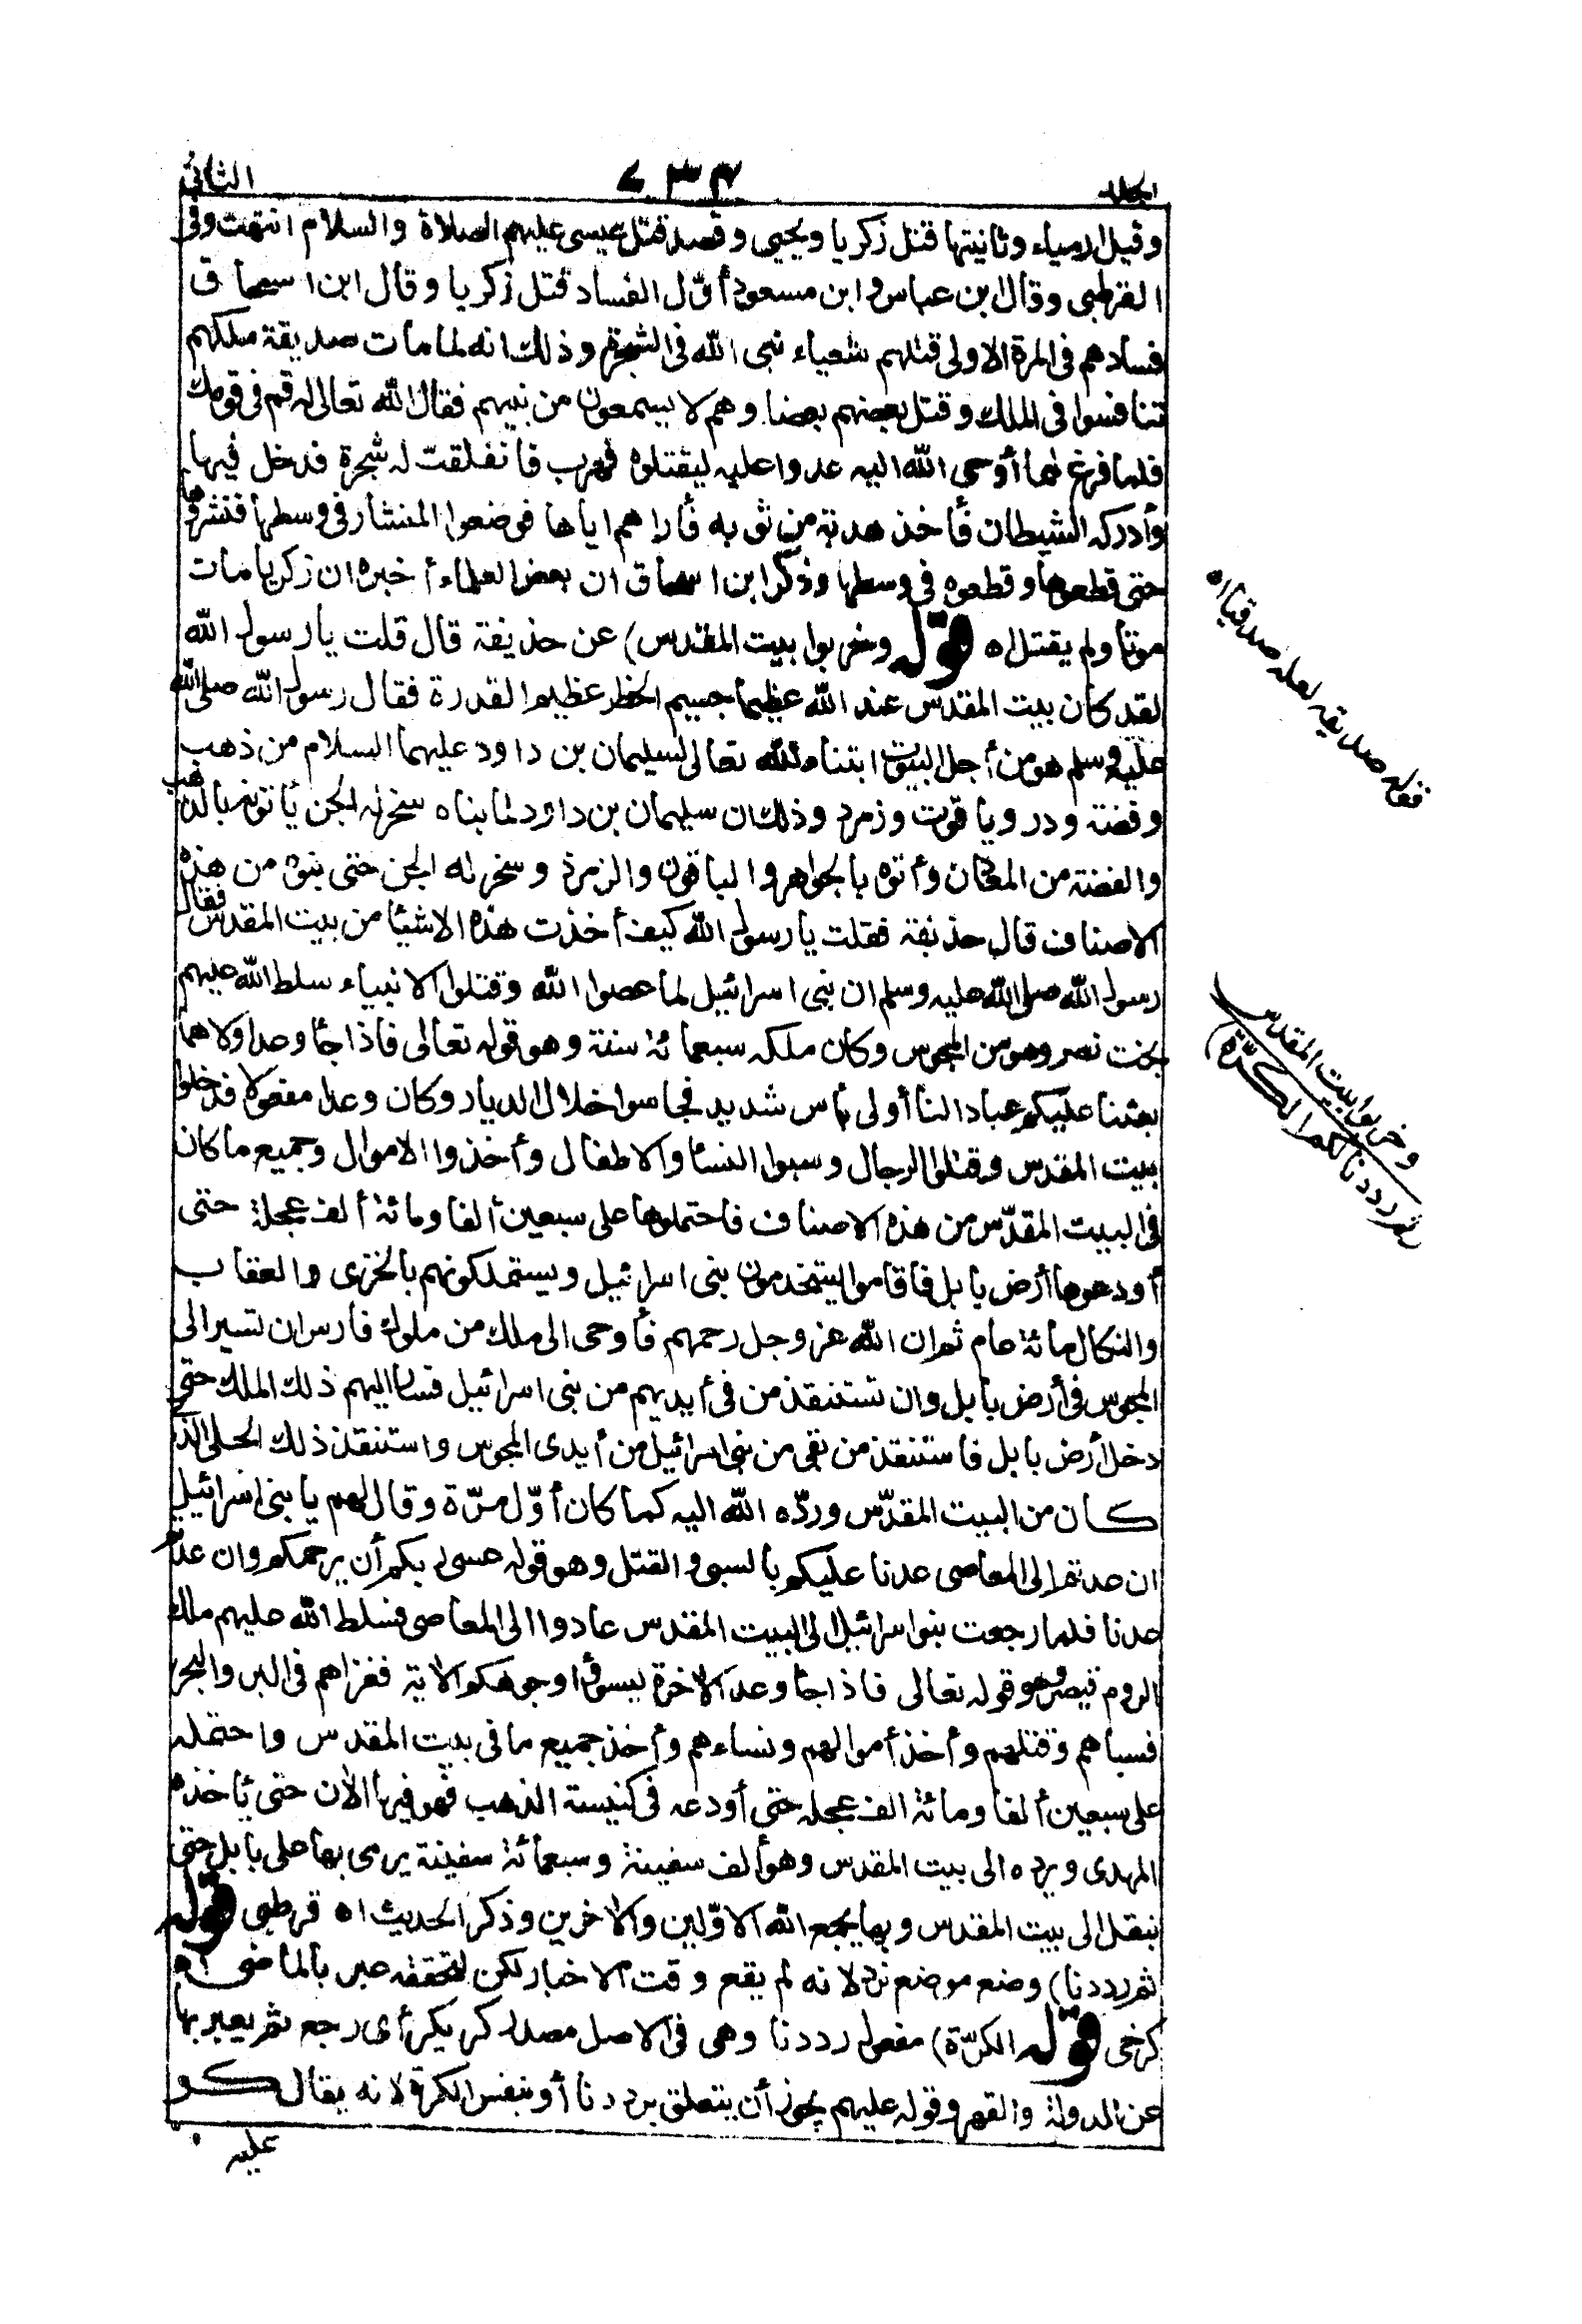 الجلد ٧٣٤ الثانى
وقيل ارمياء وثانيتها قتل زكريا ويحيى وقصد قتل عيسى عليهم الصلاة والسلام انتهت وفى
القرطبى وقال ابن عباس وابن مسعود أوّل الفساد قتل زكريا وقال ابن اسحاق
فسادهم فى المرة الاولى قتلهم شعياء نبى الله فى الشجرة وذلك انه لما مات صديقة ملكهم
تنافسوا فى الملك وقتل بعضهم بعضا وهم لا يسمعون من نبيهم فقال الله تعالى له قم فى قومك
فلما فرغ مما أوحى الله اليه عدوا عليه ليقتلوه فهرب فانفلقت له شجرة فدخل فيها
وأدركه الشيطان فأخذ هدبة من ثوبه فأراهم اياها فوضعوا المنشار فى وسطها فنشروها
حتى قطعوها وقطعوه فى وسطها وذكر ابن اسحاق ان بعض العلماء أخبره ان زكريا مات
موتا ولم يقتل اه قوله وخربوا بيت المقدس) عن حذيفة قال قلت يا رسول الله
لقد كان بيت المقدس عند الله عظيما جسيم الخطر عظيم القدرة فقال رسول الله صلى الله
عليه وسلم هو من أجل البيوت ابتناه الله تعالى لسليمان بن داود عليهما السلام من ذهب
وفضة ودر وياقوت وزمرد وذلك ان سليمان بن داود لما بناه سخر له الجن يأتونه بالذهب
والفضة من المعادن وأتوه بالجواهر والياقوت والزمرذ وسخر له الجن حتى بنوه من هذه
الاصناف قال حذيفة فقلت يا رسول الله كيف أخذت هذه الاشيا من بيت المقدس فقال
رسول الله صلى الله عليه وسلم ان بنى اسرائيل لما عصوا الله وقتلوا الانبياء سلط الله عليهم
بخت نصر وهو من المجوس وكان ملكه سبعمائة سنة وهو قوله تعالى فاذا جا وعد اولاهما
بعثنا عليكم عبادا لنا أولى بأس شديد فجاسوا خلال الديار وكان وعدا مفعولا فدخلوا
بيت المقدس وقتلوا الرجال وسبوا النسا والاطفال وأخذوا الاموال وجميع ما كان
فى البيت المقدّس من هذه الاصناف فاحتملوها على سبعين ألفا ومائة ألف عجلة حتى
أودعوها أرض بابل فاقاموا ليستخدمون بنى اسرائيل ويستملكونهم بالخزى والعقاب
والنكال مائة عام ثم ان الله عز وجل رحمهم فأوحى الى ملك من ملوك فارس ان تسير الى
المجوس فى أرض بابل وان تستنقذ من فى أيديهم من بنى اسرائيل فسار اليهم ذلك الملك حتى
دخل أرض بابل فاستنقذ من بقى من بنى اسرائيل من أيدى المجوس واستنقذ ذلك الحلى الذى
كان من البيت المقدّس وردّه الله اليه كما كان أوّل مرّة وقال لهم يا بنى اسرائيل
ان عدتم الى المعاصى عدنا عليكم بالسبى والقتل وهو قوله عسى ربكم أن يرحمكم وان عدتم
عدنا فلما رجعت بنو اسرائيل الى البيت المقدس عادوا الى المعاصى فسلط الله عليهم ملك
الروم قيصر وهو قوله تعالى فاذا جا وعد الآخرة ليسوؤا وجوهكم الآية فغزاهم فى البر والبحر
فسباهم وقتلهم وأخذ أموالهم ونساءهم وأخذ جميع ما فى بيت المقدس واحتمله
على سبعين ألفا ومائة الف عجله حتى أودعه فى كنيسة الذهب فهو فيها الآن حتى يأخذه
المهدى ويرده الى بيت المقدس وهو ألف سفينة وسبعمائة سفينة يرمى بها على بابل حتى
ينقل الى بيت المقدس وبها يجمع الله الاوّلين والآخرين وذكر الحديث اه قرطبى قوله
ثم رددنا) وضع موضع نرد لانه لم يقع وقت الاخبار لكن لتحققه عبر بالماضى اه
كرخى قوله الكرّة) مفعول رددنا وهى فى الاصل مصدر كر يكر أى رجع ثم يعبر بها
عن الدولة والقهر وقوله عليهم يجوز أن يتعلق برددنا أو بنفس الكرة لانه يقال كر
عليه
فقاله صديقه لعله صدقيا اه
وخربوا بيت المقدس
ثم رددنا لكم الكرّة)